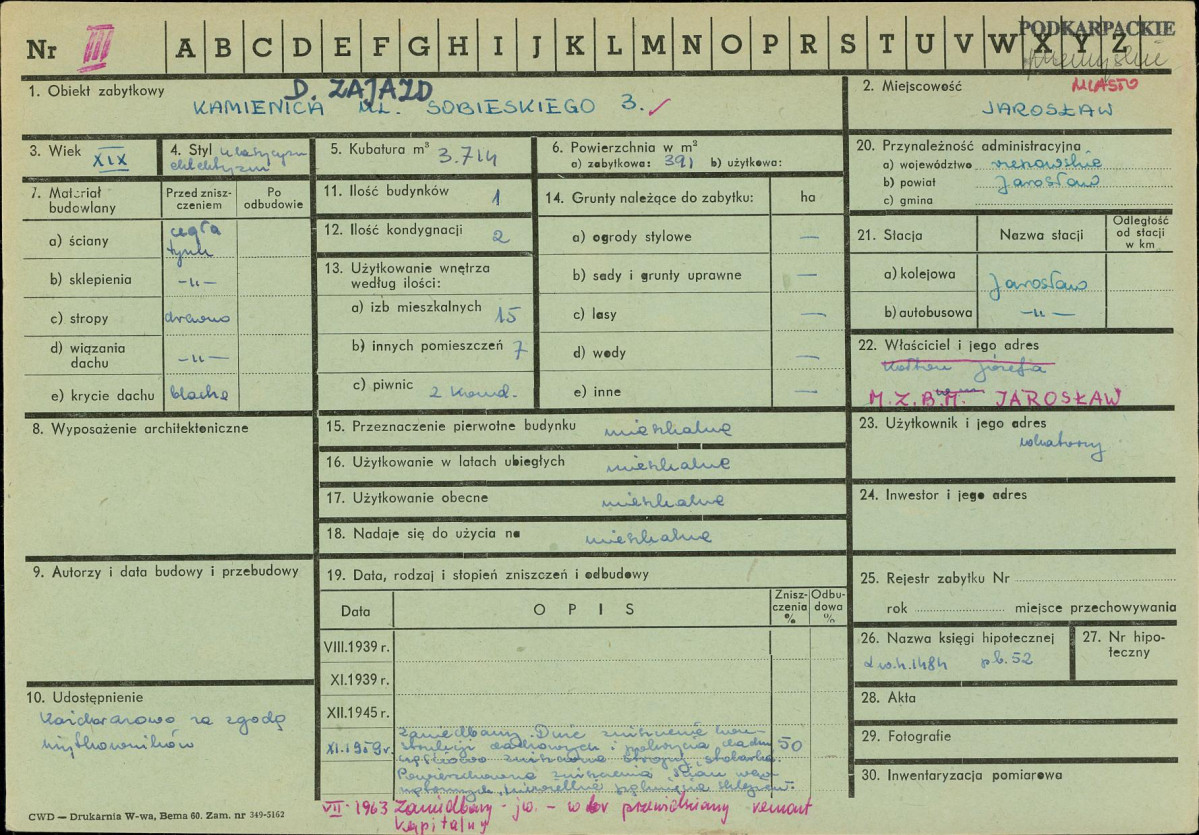 Nr III A B C D E F G H I J K L M N O P R S T U V W X Y Z
PODKARPACKIE
przemyskie
1. Obiekt zabytkowy
D. ZAJAZD
KAMIENICA UL. SOBIESKIEGO 3.
2. Miejscowość MIASTO
JAROSŁAW
3. Wiek XIX
4. Styl klasycyzm
eklektyzm
5. Kubatura m³ 3.714
6. Powierzchnia w m²
a) zabytkowa: 391 b) użytkowa:
20. Przynależność administracyjna
a) województwo rzeszowskie
b) powiat Jarosław
c) gmina
7. Materiał budowlany
Przed zniszczeniem
Po odbudowie
a) ściany cegła
tynk
b) sklepienia —„—
c) stropy drewno
d) wiązania dachu —„—
e) krycie dachu blacha
11. Ilość budynków 1
12. Ilość kondygnacji 2
13. Użytkowanie wnętrza
według ilości:
a) izb mieszkalnych 15
b) innych pomieszczeń 7
c) piwnic 2 kond.
14. Grunty należące do zabytku: ha
a) ogrody stylowe —
b) sady i grunty uprawne —
c) lasy —
d) wody —
e) inne —
21. Stacja Nazwa stacji
Odległość
od stacji
w km
a) kolejowa Jarosław
b) autobusowa —„—
22. Właściciel i jego adres
Józefa
M.Z.B.M. JAROSŁAW
8. Wyposażenie architektoniczne
15. Przeznaczenie pierwotne budynku mieszkalne
16. Użytkowanie w latach ubiegłych mieszkalne
17. Użytkowanie obecne mieszkalne
18. Nadaje się do użycia na mieszkalne
23. Użytkownik i jego adres
lokatorzy
24. Inwestor i jego adres
9. Autorzy i data budowy i przebudowy
19. Data, rodzaj i stopień zniszczeń i odbudowy
Data O P I S
Zniszczenia %
Odbudowa %
VIII.1939 r.
XI.1939 r.
XII.1945 r.
XI.1959 r.
Zaniedbany. Duże zniszczenie kon-
strukcji dachowych i pokrycia dachu 50
częściowo zniszczone stropy, stolarka.
Powierzchowne zniszczenia ścian
sklepień.
VII. 1963 Zaniedbany - jw. - przewidziany remont
kapitalny
25. Rejestr zabytku Nr
rok miejsce przechowywania
26. Nazwa księgi hipotecznej
Lwh. 1484 pb. 52
27. Nr hipoteczny
10. Udostępnienie
Każdorazowo za zgodą
użytkowników
28. Akta
29. Fotografie
30. Inwentaryzacja pomiarowa
CWD — Drukarnia W-wa, Bema 60. Zam. nr 349-5162